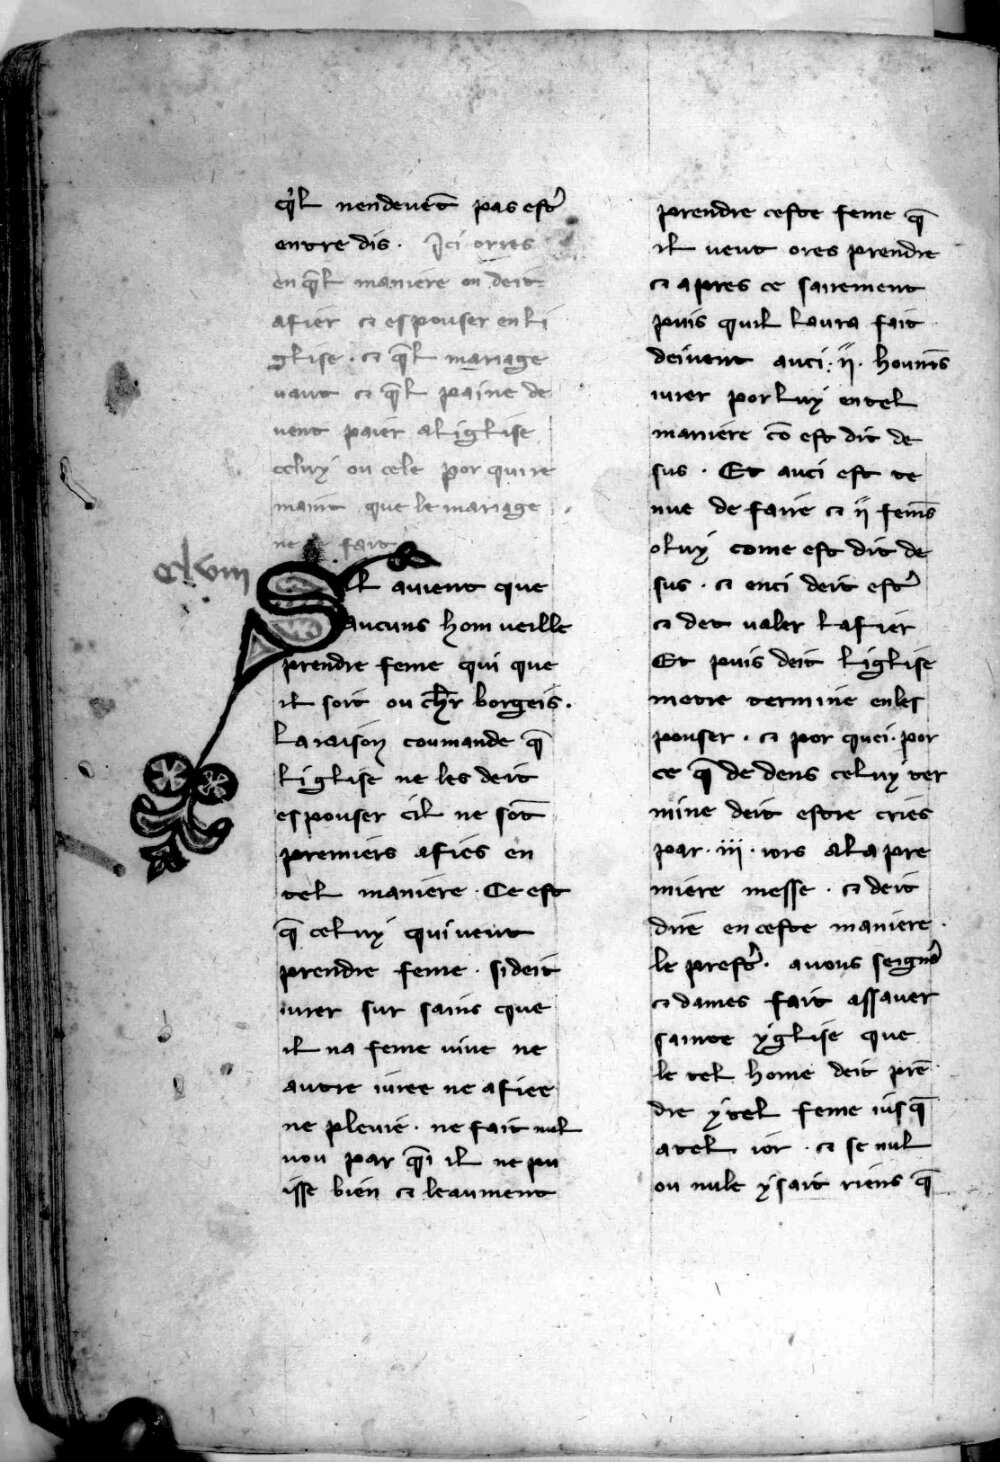 q̃l nendeuẽt pas estr̃
entre dis. Ici orres
en q̃l maniere on deit
afier ⁊ espouser en li
glise. ⁊ q̃l mariage
vaut ⁊ q̃l paine de
uent paier a liglise
celuy ou cele por qui re
maint que le mariage
ne se fait
clviii
Sil auient que
aucuns hom ueille
prendre feme qui que
il soit ou ch̃r borgeis.
La raison coumande q̃
liglise ne les deit
espouser cil ne sõt
premiers afies en
tel maniere. Ce est
q̃ celuy qui ueut
prendre feme. si deit
iurer sur sains que
il na feme uiue ne
autre iuree ne afiee
ne pleuie. ne fait nul
uou par q̃i il ne pu
isse bien ⁊ leaument
prendre ceste feme q̃
il ueut ores prendre
⁊ apres ce sairement
puis quil laura fait
deiuent auci .ii. houm̃s
iurer por luy en tel
maniere cõ est dit de
sus. Et auci est te
nue de faire ⁊ ii fem̃s
o luy come est dit de
sus. ⁊ enci deit estr̃
⁊ det ualer lafier
Et puis deit liglise
metre termine en les
pouser. ⁊ por quei. por
ce q̃ de dens celuy ter
mine deit estre cries
par .iii. iors a la pre
miere messe. ⁊ deit
dire en ceste maniere.
le prestr̃. a uous seign̄o
⁊ dames fait assauer
sainte yglise que
le tel home deit prẽ
dre ytel feme iusq̃
a tel ior. ⁊ se nul
ou nule y sait riens q̃